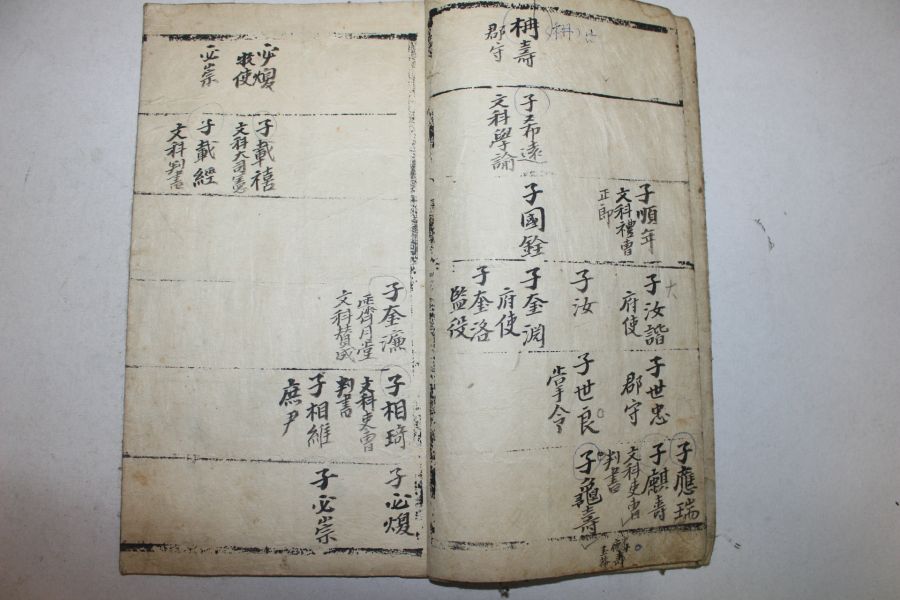 枏壽
郡守
子希遠
文科學諭
子順年
文科禮曹
正郎
子國銓
子汝諧
府使
子汝
子奎渊
府使
子奎洛
監役
子世忠
郡守
子世良
掌令
子應瑞
子麒壽
文科吏曹
判書
子龜壽
必煥
牧使
必崇
子載禧
文科大司憲
子載經
文科判書
子奎濂
霽月堂
文科贊成
子相琦
文科吏曹
判書
子相維
庶尹
子必煥
子必崇